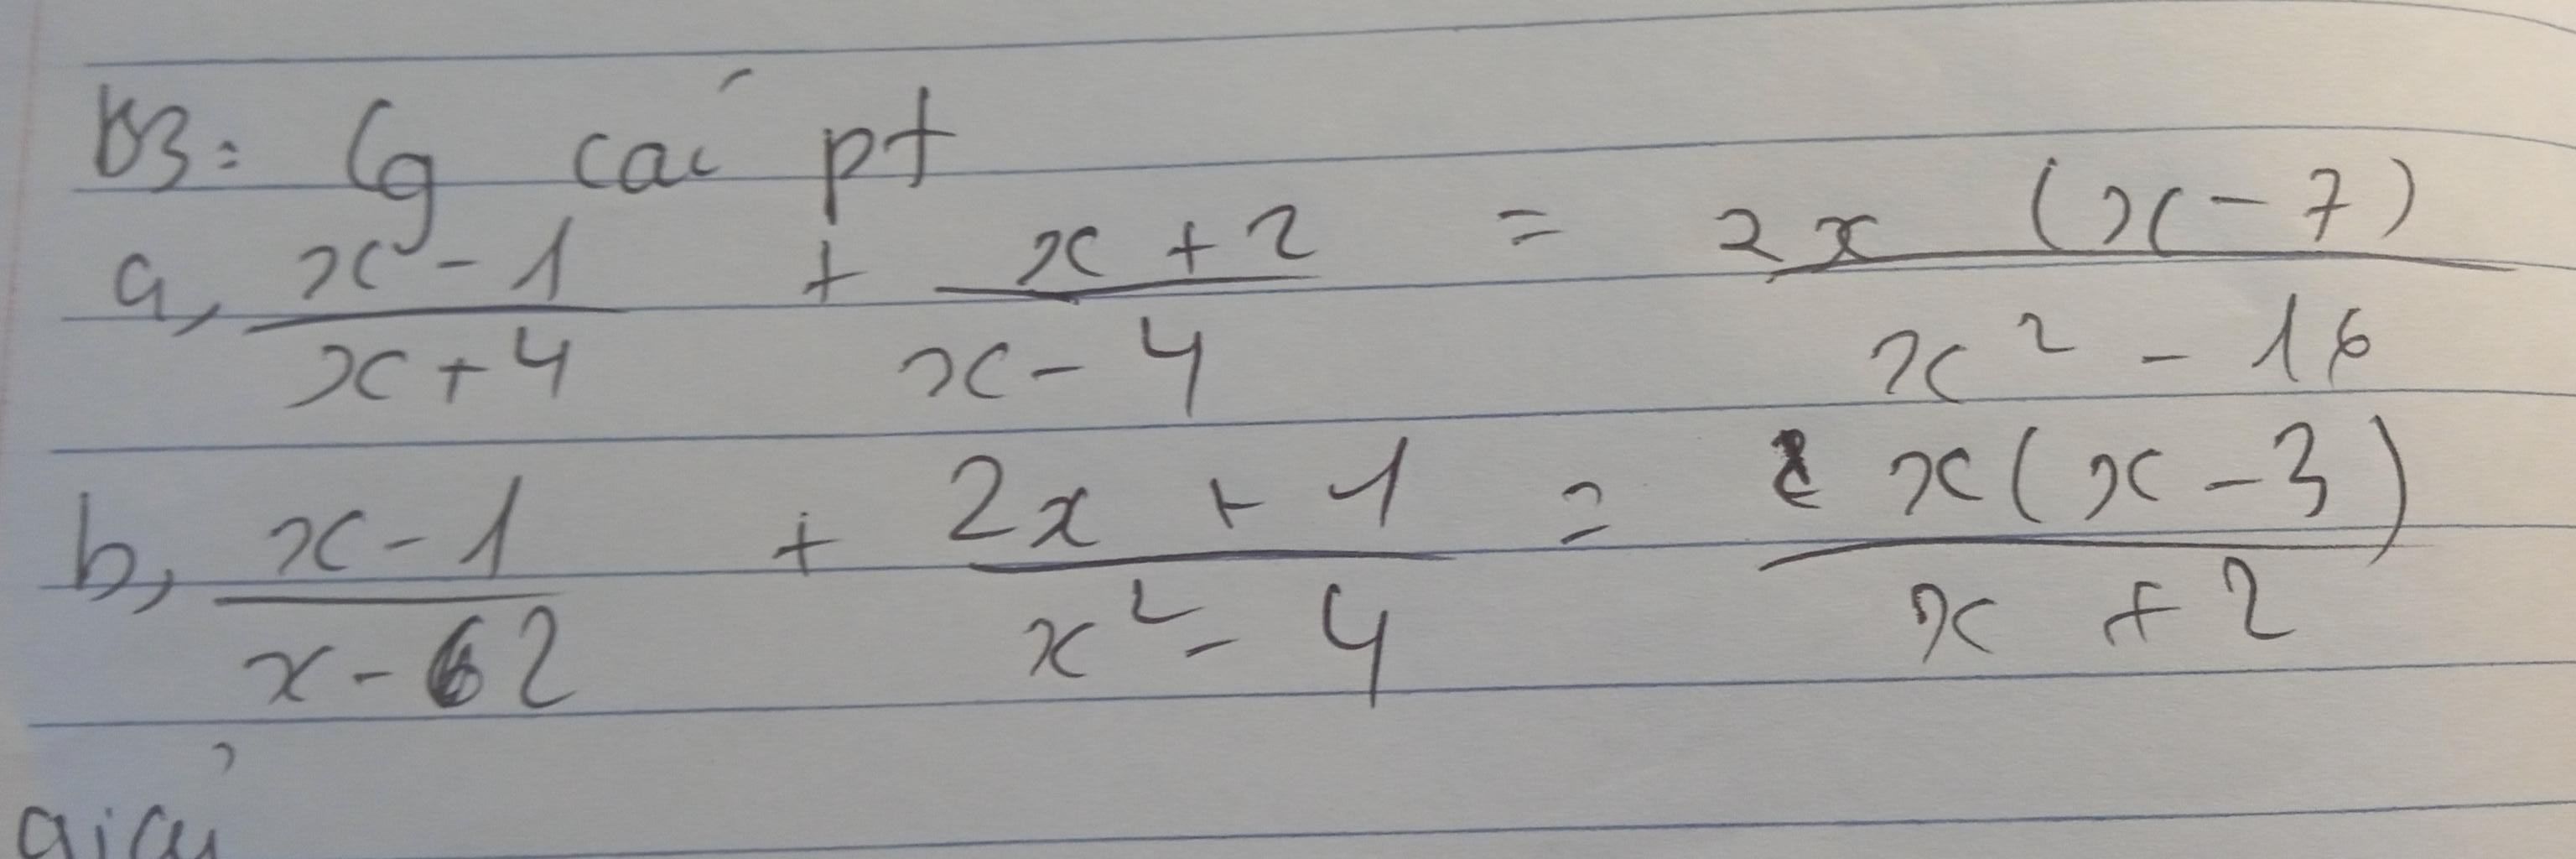 B3: Gg cać pt
a, x - 1 / x + 4 + x + 2 / x - 4 = 2x (x - 7) / x² - 16
b, x - 1 / x - 2 + 2x + 1 / x² - 4 = x(x - 3) / x + 2
giải